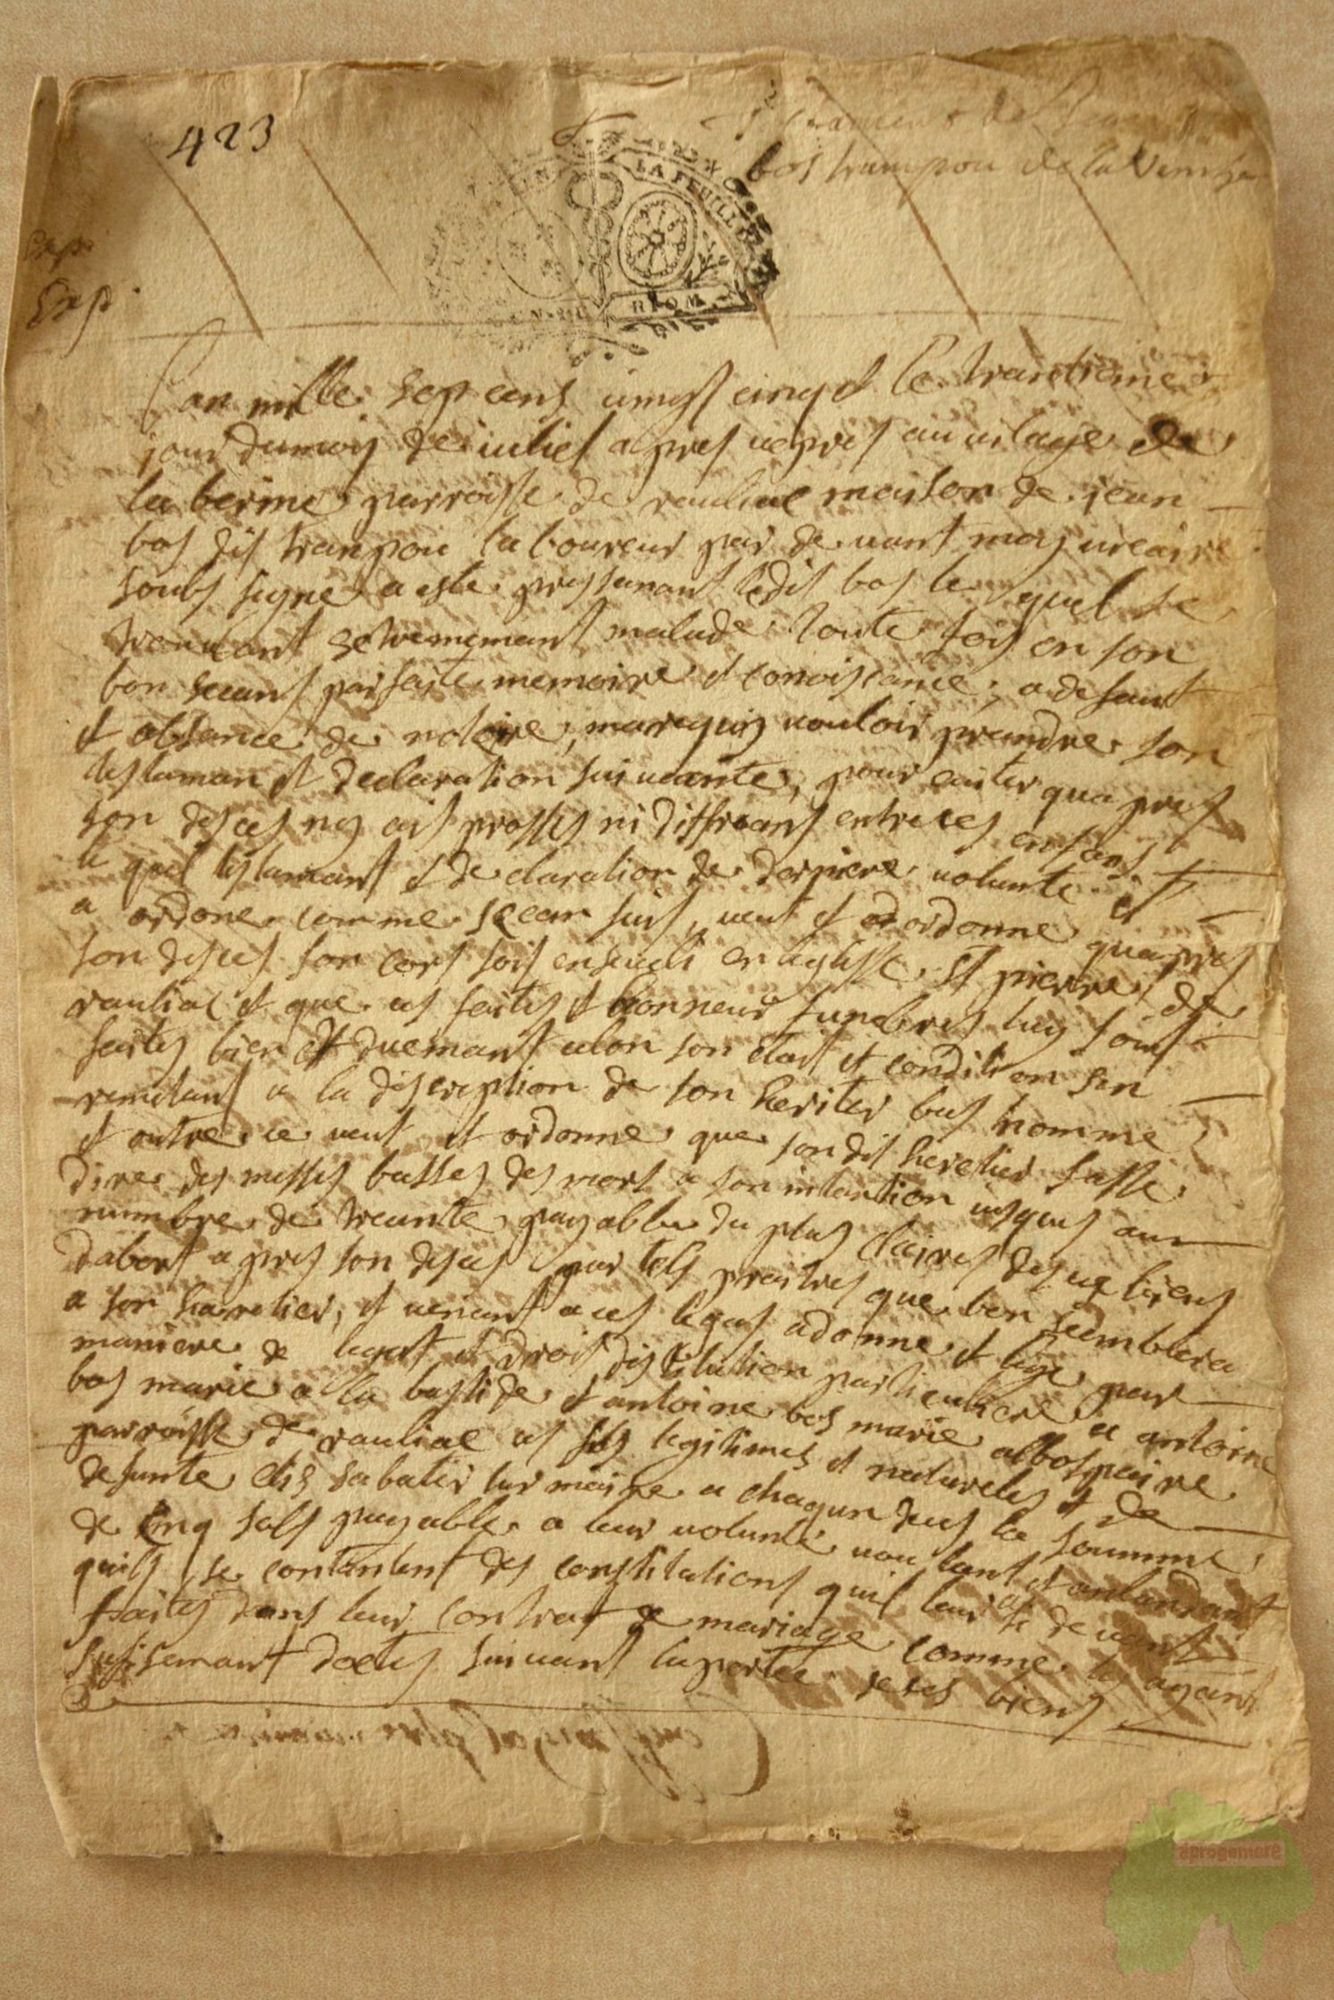 423
bos trampou de la
LA FEUILLE
RIOM
Exp.
Exp.
Lan mille sept cens vingt cinq et le trantieme
jour du mois de juliet apres vepres au vilage de
la berme parroisse de rauliac maison de jean
bos dit trampou laboureur par devant moy vicaire
soubs signe a este pressenant ledit bos le quel se
trouvant extrememant malade toute fois en son
bon scans parfaite memoire et conoiscance, a desaut
et obsance de notoire, ma requis vouloir prandre son
testaman et declaration suivante, pour eviter qua pres
son desces ny ait prosses ni diffrans entre ces enfans
le quel testamant et declaration de derniere volunte
a ordone comme scean suit, veut et ordonne qua pres
son desces son cors soit enseveli en leglisse St pierre de
rauliac et que ces faites et honneur funebres luy soint
faites bien et duemant celon son etat et condition san
remetant a la discreption de son heritier bas nomme
et outre ce veut et ordonne que son dit heretier fasse
dire des messes basses des mort a son intantion jusques au
numbre de trante payable du plus claires de ces biens
dabort apres son desces par tels praitres que bon seemblera
a son haretier, et venant a ces legas a donne et lege par
maniere de legat et droit distitution particuliere a antoine
bos marie a la bastide et antoine bos marie albospaire
parroisse de rauliac ces fils legitimes et natureles et de
defunte elis sabatir lur maire a chaqun deus la somme
de cinq sols payable a leur volunte voulant et antandant
quils se contantent des constitutions quil leur a devant
faites dans leur contrat de mariage comme les ayant
sufisemant doctes suivant la portee de ses biens